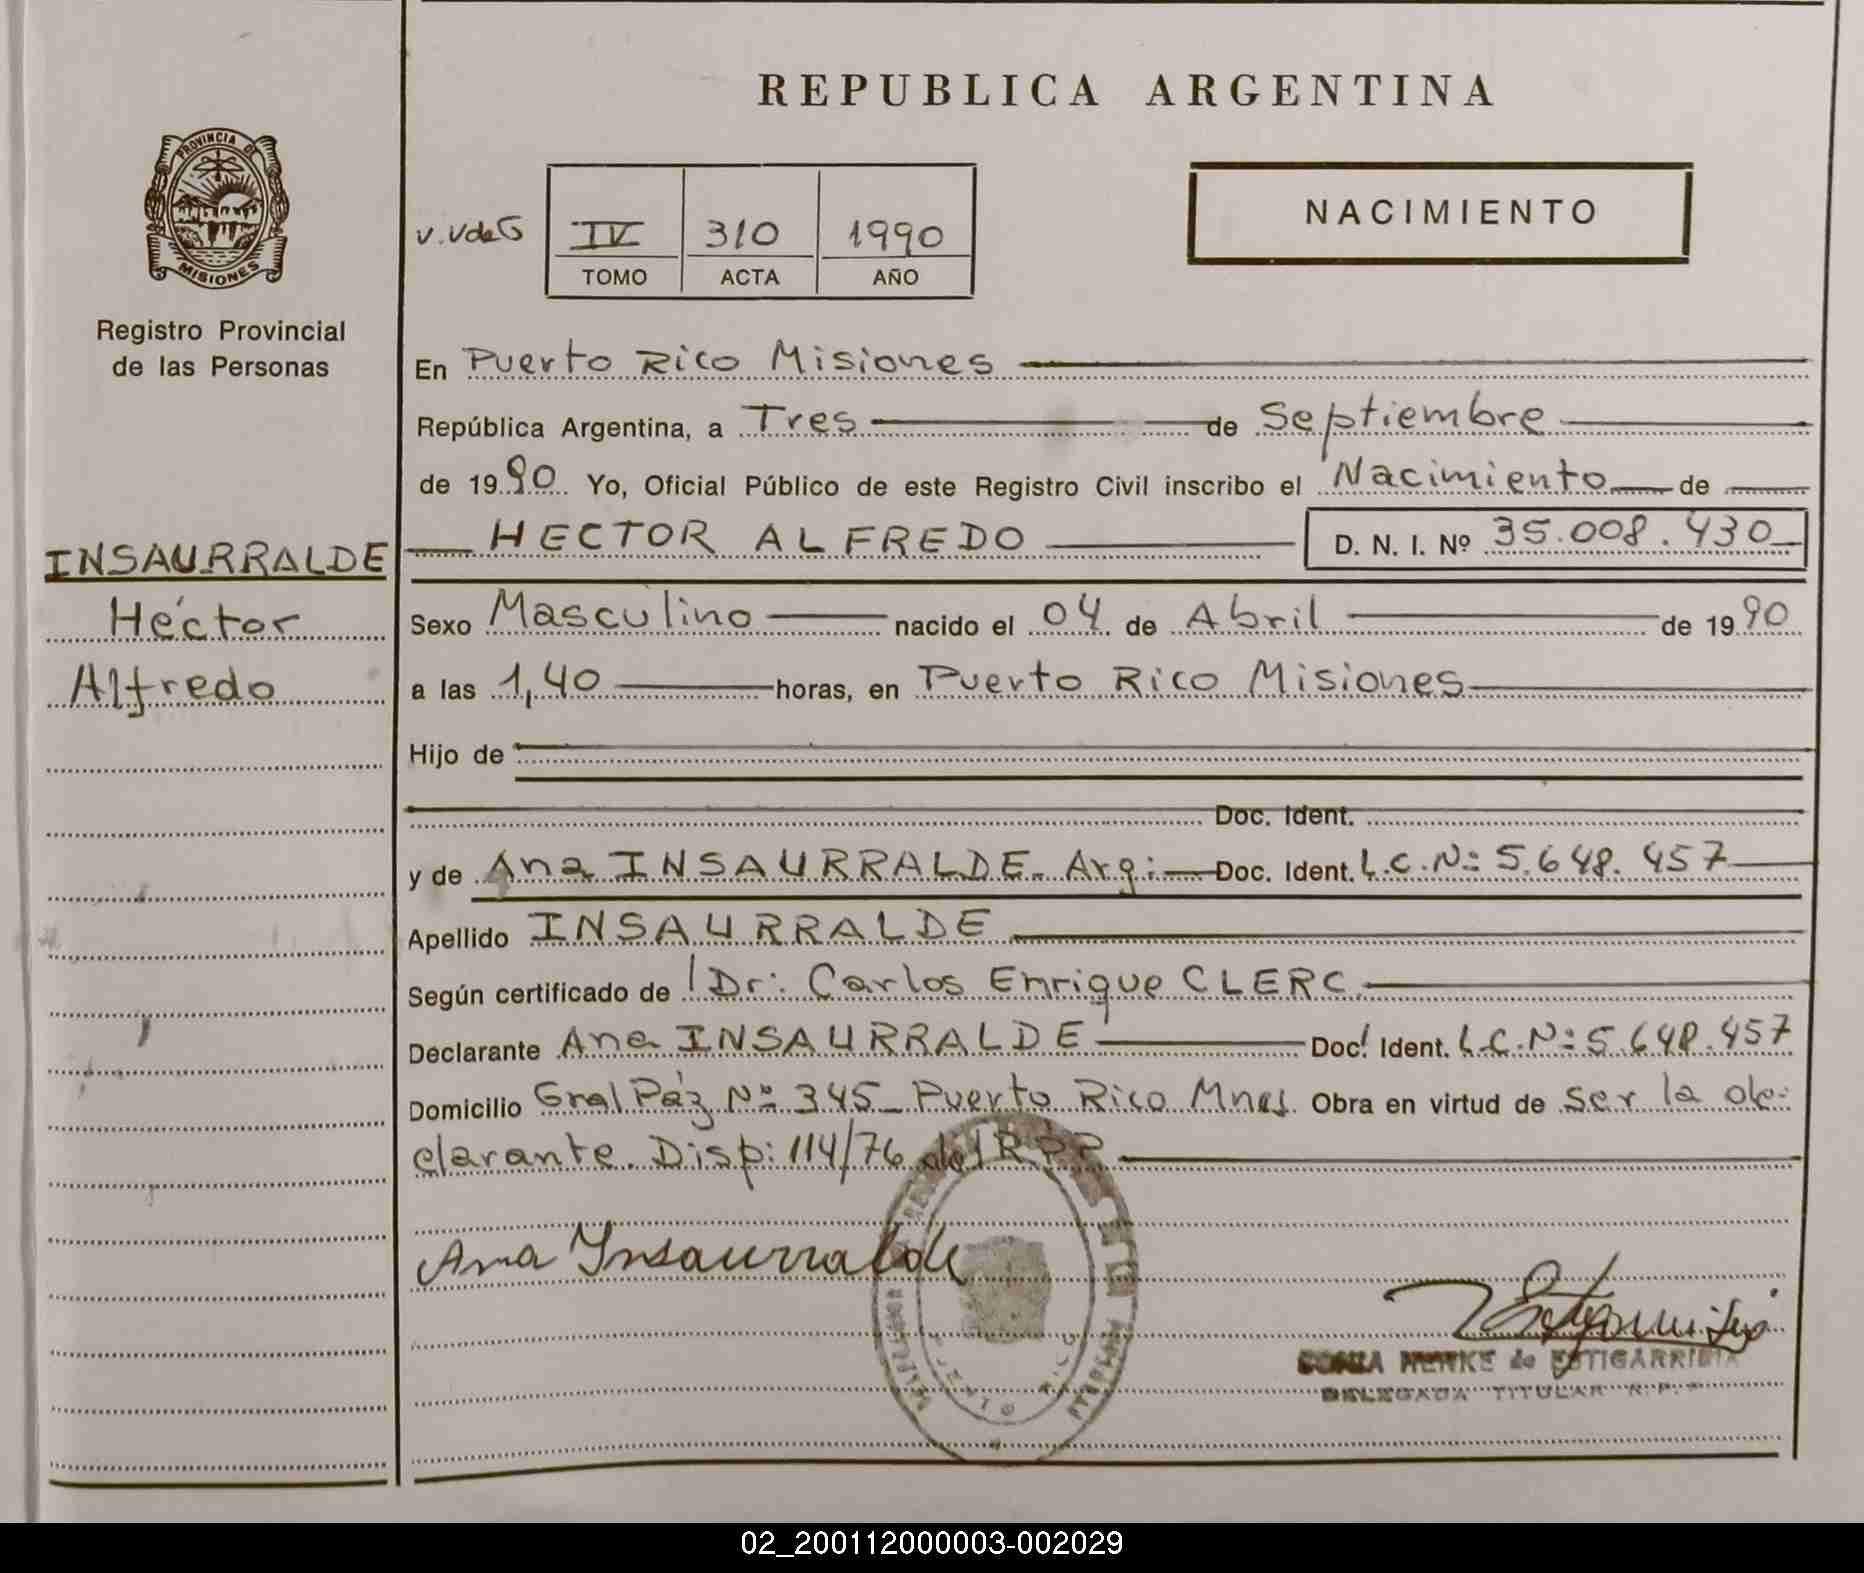 REPUBLICA ARGENTINA
PROVINCIA DE
MISIONES
Registro Provincial
de las Personas
INSAURRALDE
Héctor
Alfredo
v.VdeG
IV 310 1990
TOMO ACTA AÑO
NACIMIENTO
En Puerto Rico Misiones
República Argentina, a Tres de Septiembre
de 1990 Yo, Oficial Público de este Registro Civil inscribo el Nacimiento de
HECTOR ALFREDO D. N. I. Nº 35.008.430
Sexo Masculino nacido el 04 de Abril de 1990
a las 1,40 horas, en Puerto Rico Misiones
Hijo de
Doc. Ident.
y de Ana INSAURRALDE. Arg: Doc. Ident. L.C.Nº 5.648.457
Apellido INSAURRALDE
Según certificado de Dr: Carlos Enrique CLERC.
Declarante Ana INSAURRALDE Doc. Ident. L.C.Nº 5.648.457
Domicilio Gral Páz Nº 345_ Puerto Rico Mnes. Obra en virtud de ser la de-
clarante. Disp: 114/76 del RPP
Ana Ynsaurralde
PUERTO RICO
SONIA HENKE de ESTIGARRIBIA
DELEGADA TITULAR R.P.P
02_200112000003-002029